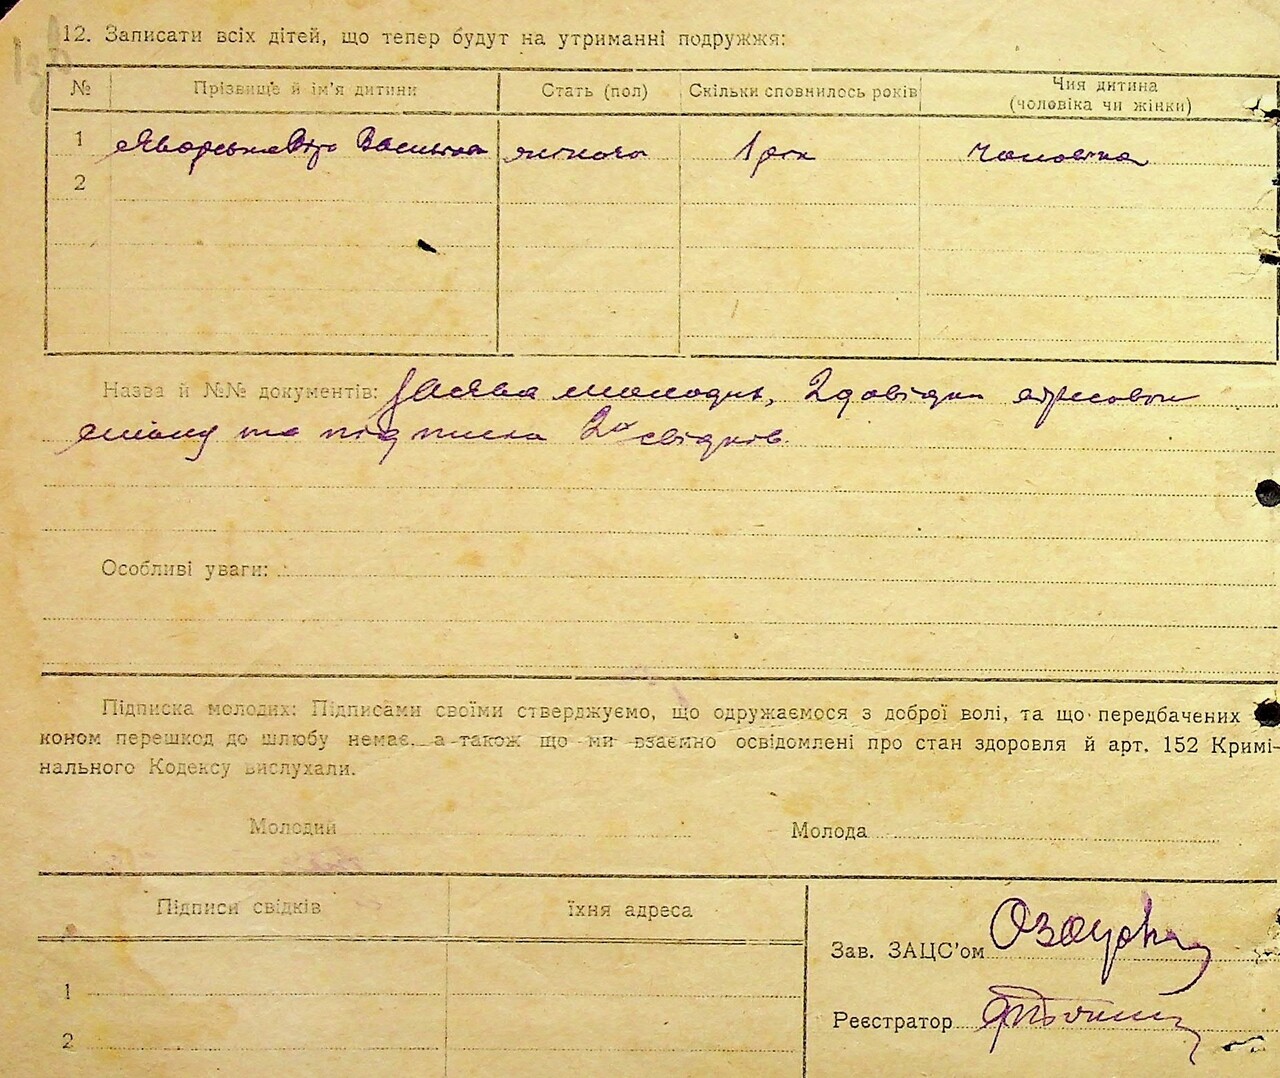 12. Записати всіх дітей, що тепер будут на утриманні подружжя:
№ Прізвище й ім'я дитини Стать (пол) Скільки сповнилось років Чия дитина
(чоловіка чи жінки)
1 Яворська Віра жіноча 1 рік чоловіка
2
Назва й №№ документів: Заява молодих, 2 довідки адресового
та підписка 2х свідків.
Особливі уваги:
Підписка молодих: Підписами своїми стверджуємо, що одружаємося з доброї волі, та що передбачених
коном перешкод до шлюбу немає, а також що ми взаємно освідомлені про стан здоровля й арт. 152 Кримі-
нального Кодексу вислухали.
Молодий Молода
Підписи свідків їхня адреса
Зав. ЗАЦС'ом
1
Реєстратор
2